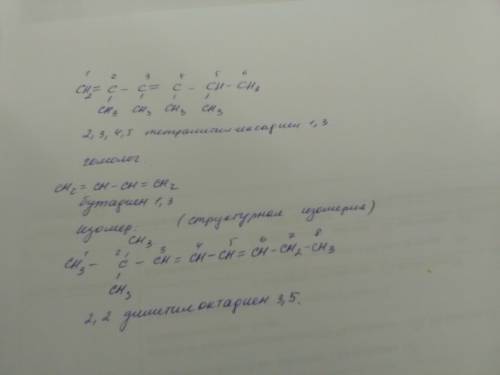 1 2 3 4 5 6
CH2 = C – C = C – CH – CH3
CH3 CH3 CH3 CH3
2, 3, 4, 5 тетраметилгексадиен 1,3
гомолог
CH2 = CH – CH = CH2
бутадиен 1,3
изомер: (структурная изомерия)
CH3
1 2 3 4 5 6 7 8
CH3 – C – CH = CH – CH = CH – CH2 – CH3
CH3
2, 2 диметил октадиен 3,5.